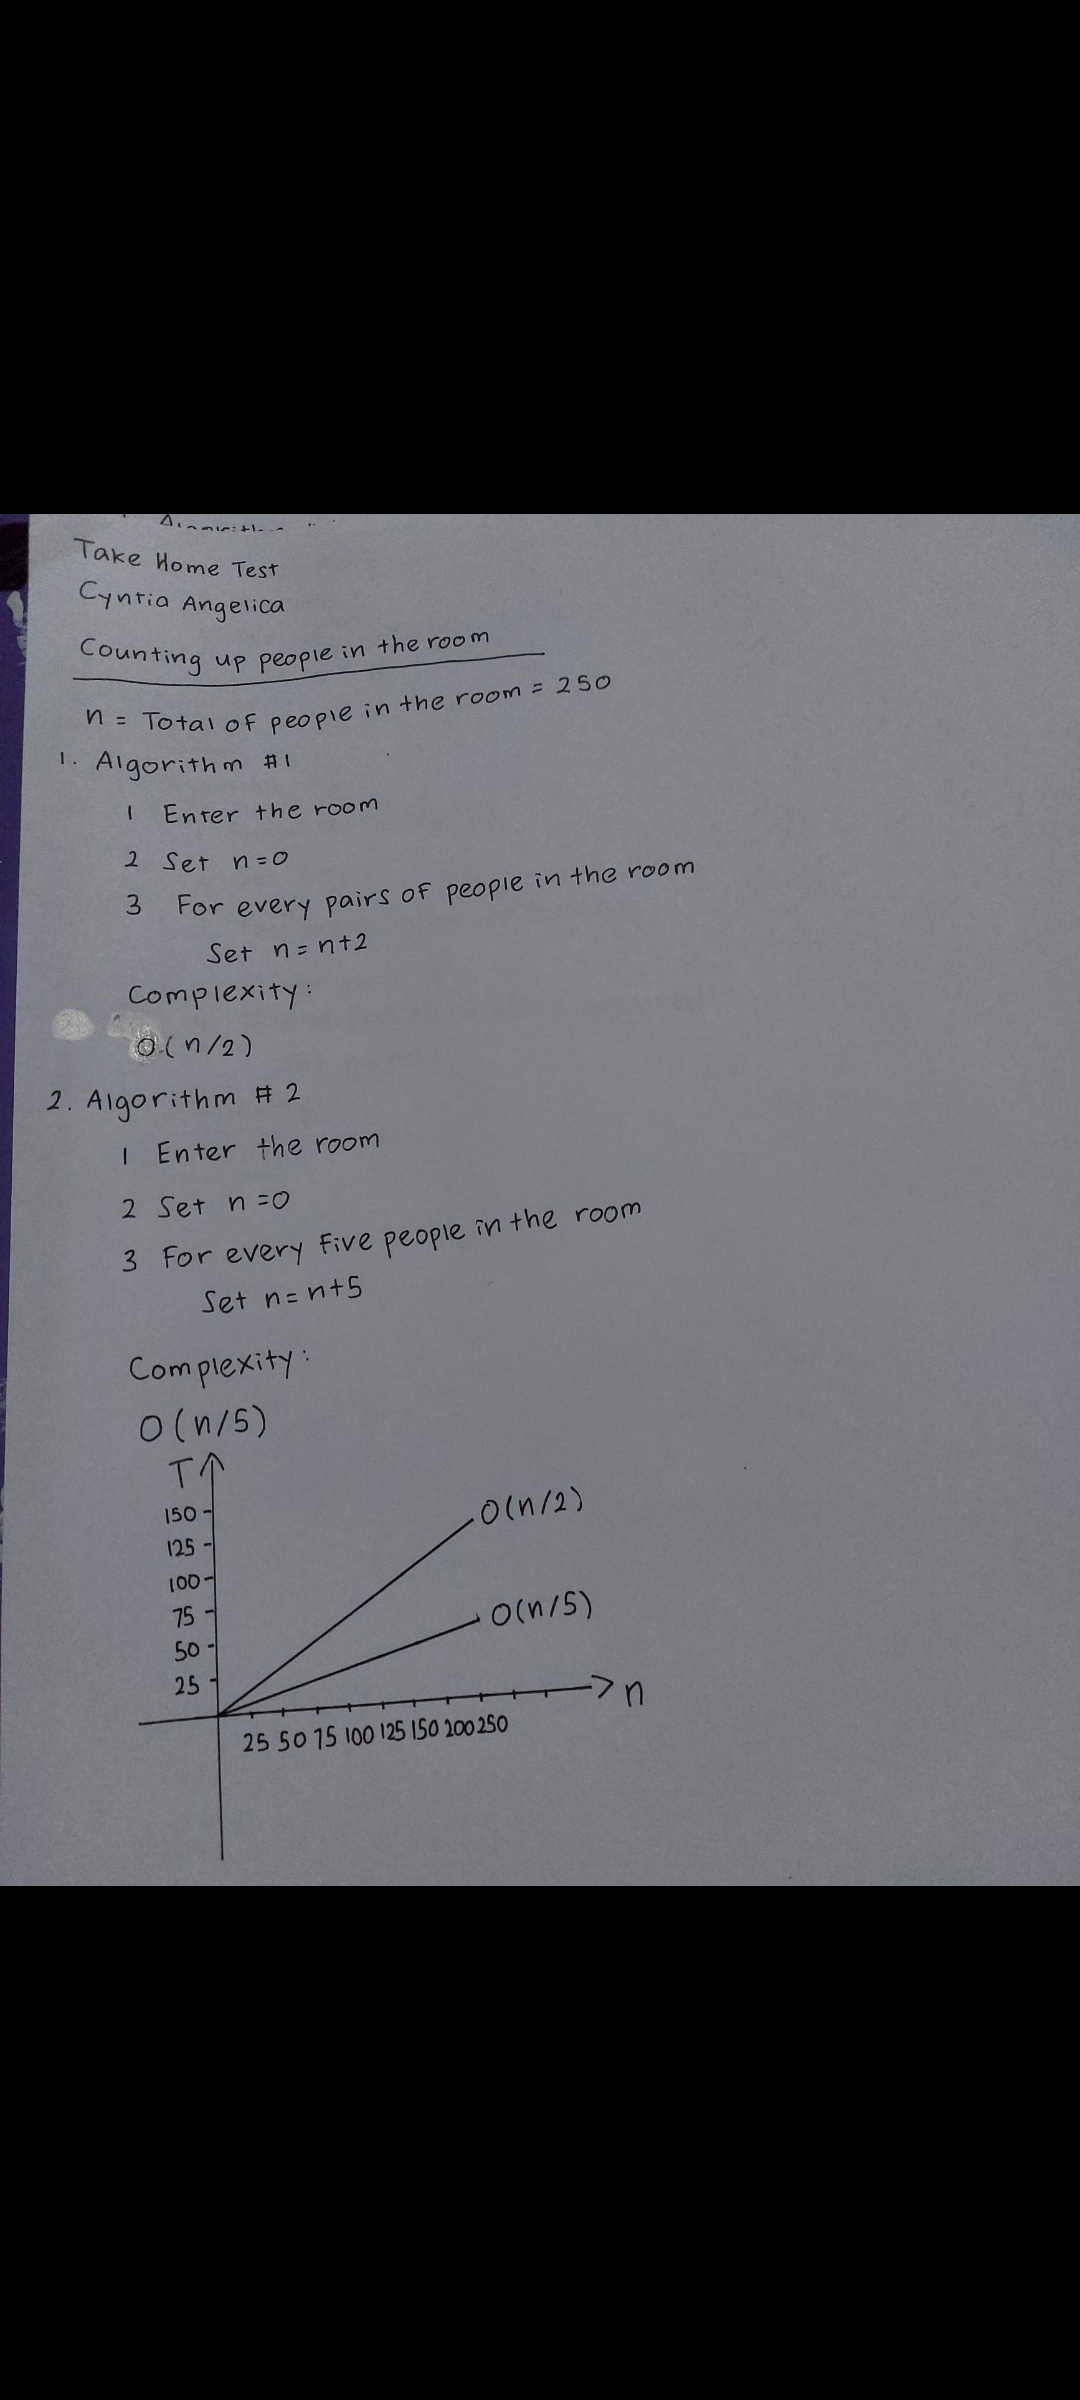 Take Home Test
Cyntia Angelica
Counting up people in the room
n = Total of people in the room = 250
1. Algorithm #1
1 Enter the room
2 Set n=0
3 For every pairs of people in the room
Set n=n+2
Complexity:
O(n/2)
2. Algorithm # 2
1 Enter the room
2 Set n=0
3 For every Five people in the room
Set n=n+5
Complexity:
O(n/5)
T
150
125
100
75
50
25
O(n/2)
O(n/5)
n
25 50 75 100 125 150 200 250